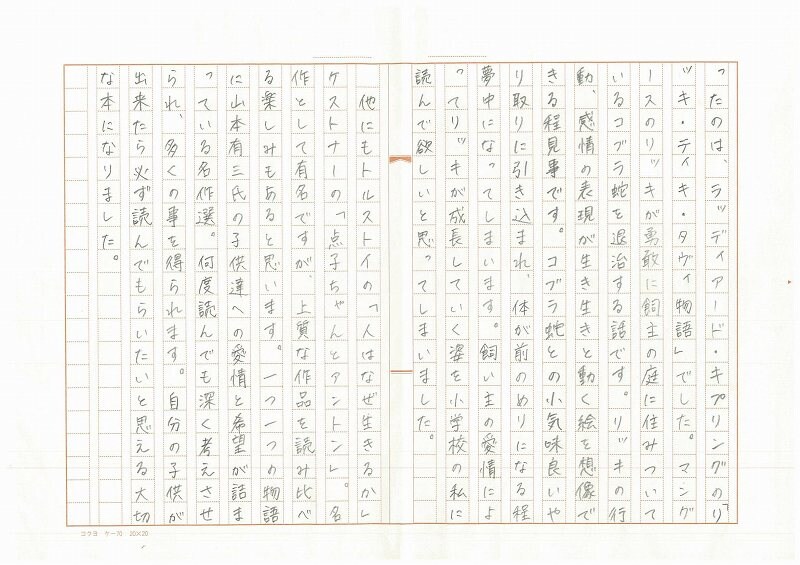 ったのは、ラッディアード・キプリングの「リ
ッキ・ティキ・タヴィ物語」でした。マング
ースのリッキが勇敢に飼主の庭に住みついて
いるコブラ蛇を退治する話です。リッキの行
動、感情の表現が生き生きと動く絵を想像で
きる程見事です。コブラ蛇との小気味良いや
り取りに引き込まれ、体が前のめりになる程
夢中になってしまいます。飼い主の愛情によ
ってリッキが成長していく姿を小学校の私に
読んで欲しいと思ってしまいました。
他にもトルストイの「人はなぜ生きるか」
ケストナーの「点子ちゃんとアントン」。名
作として有名ですが、上質な作品を読み比べ
る楽しみもあると思います。一つ一つの物語
に山本有三氏の子供達への愛情と希望が詰ま
っている名作選。何度読んでも深く考えさせ
られ、多くの事を得られます。自分の子供が
出来たら必ず読んでもらいたいと思える大切
な本になりました。
コクヨ ケー70 20×20